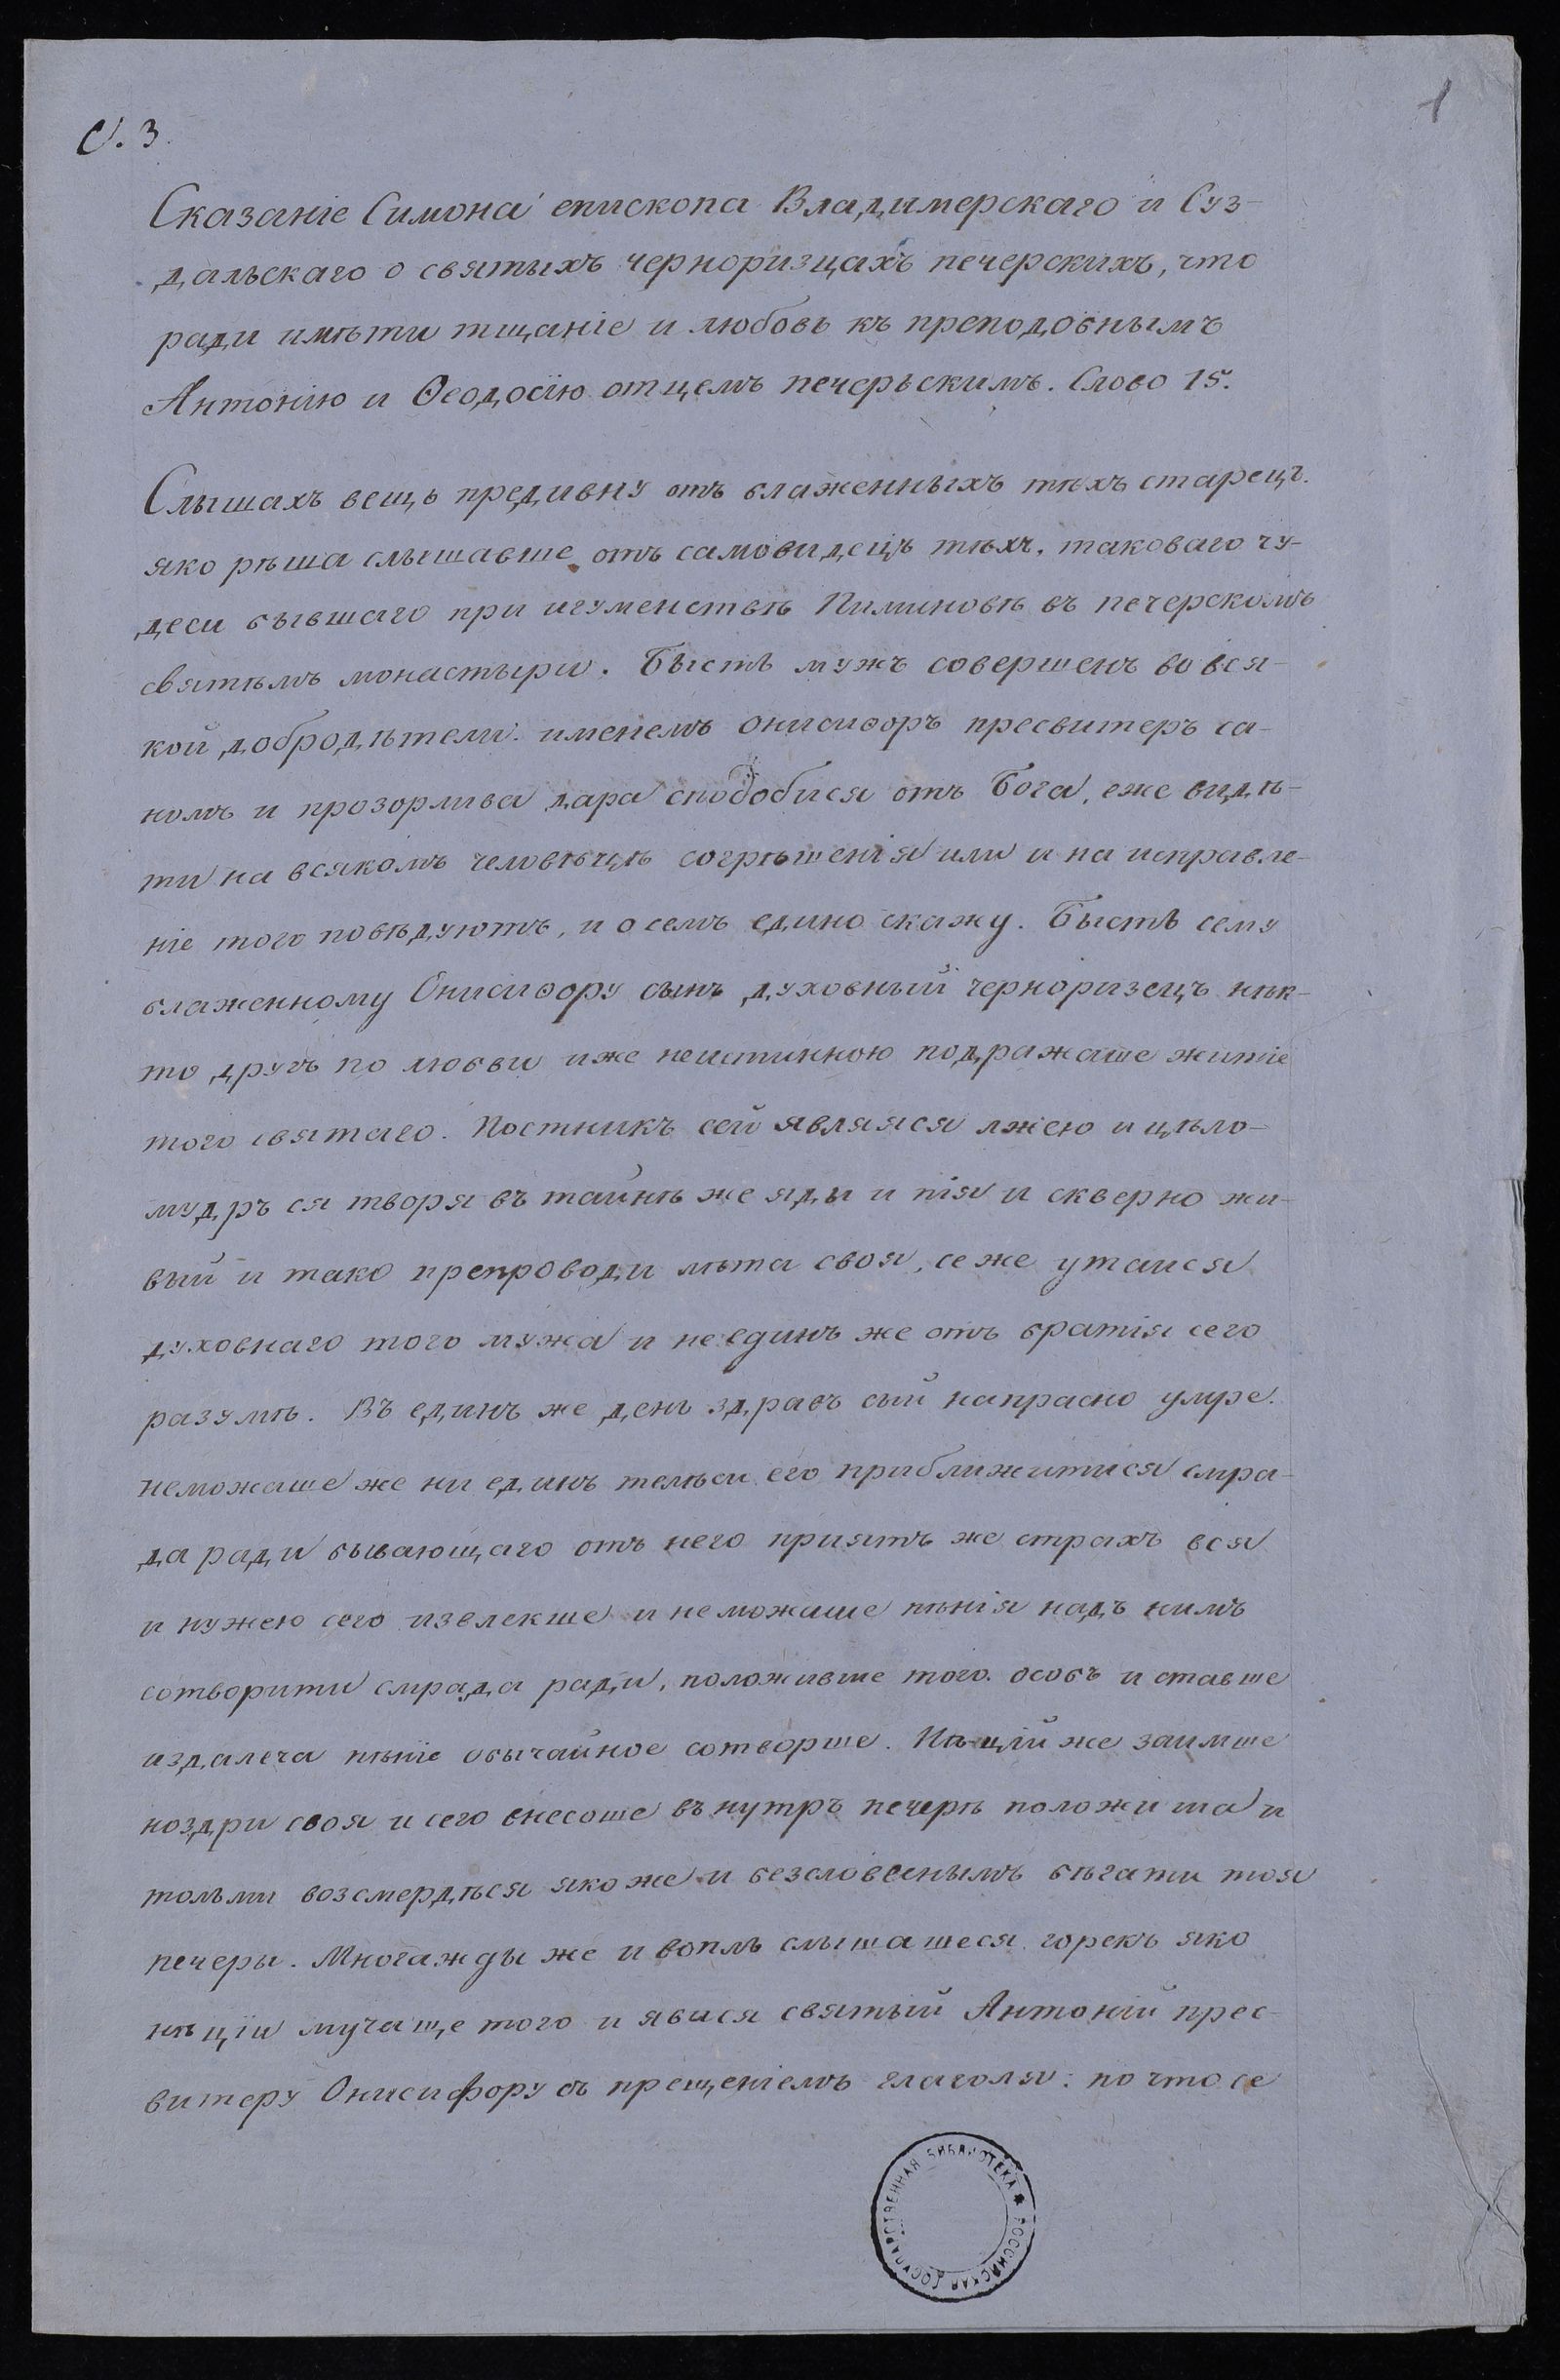 С. 3.
1
Сказаніе Симона епископа Владимерскаго и Суз-
дальскаго о святыхъ черноризцахъ печерскихъ, что
ради имѣти тщаніе и любовь къ преподобнымъ
Антонію и Ѳеодосію отцемъ печерьскимъ. Слово 15.
Слышахъ вещь предивну отъ блаженныхъ тѣхъ старецъ.
яко рѣша слышавше отъ самовидецъ тѣхъ, таковаго чу-
деси бывшаго при игуменствѣ Пиминовѣ въ печерскомъ
святѣмъ монастыри. Бысть мужъ совершенъ во вся-
кой добродѣтели именемъ Онисиѳоръ пресвитеръ са-
номъ и прозорлива дара сподобися отъ Бога, еже видѣ-
ти на всякомъ человѣцѣ согрѣшенія или и на исправле-
ніе того повѣдуютъ, и о семъ едино скажу. Бысть сему
блаженному Онисиѳору сынъ духовный черноризецъ нѣк-
то другъ по любви иже неистинною подражаше житіе
того святаго. Постникъ сей являяся лжею и цѣло-
мудръ ся творя въ тайнѣ же яды и пія и скверно жи-
вый и тако препроводи лѣта своя, се же утаися
духовнаго того мужа и не единъ же отъ братія сего
разумѣ. Въ единъ же день здравъ сый напрасно умре.
неможаше же ни единъ телѣси его приближитися смра-
да ради бывающаго отъ него пріятъ же страхъ вся
и нужею сего извлекше и неможаше пѣнія надъ нимъ
сотворити смрада ради, положивше того особъ и ставше
издалеча пѣніе обычайное сотворше. Нѣцій же заимше
ноздри своя и сего внесоше въ нутръ печерѣ положиша и
тольми возсмердѣся якоже и безсловеснымъ бѣгати тоя
печеры. Многажды же и вопль слышашеся горекъ яко
нѣціи мучаще того и явися святый Антоній прес-
витеру Онисифору съ прещеніемъ глаголя: по что се
РОССИЙСКАЯ ГОСУДАРСТВЕННАЯ БИБЛИОТЕКА